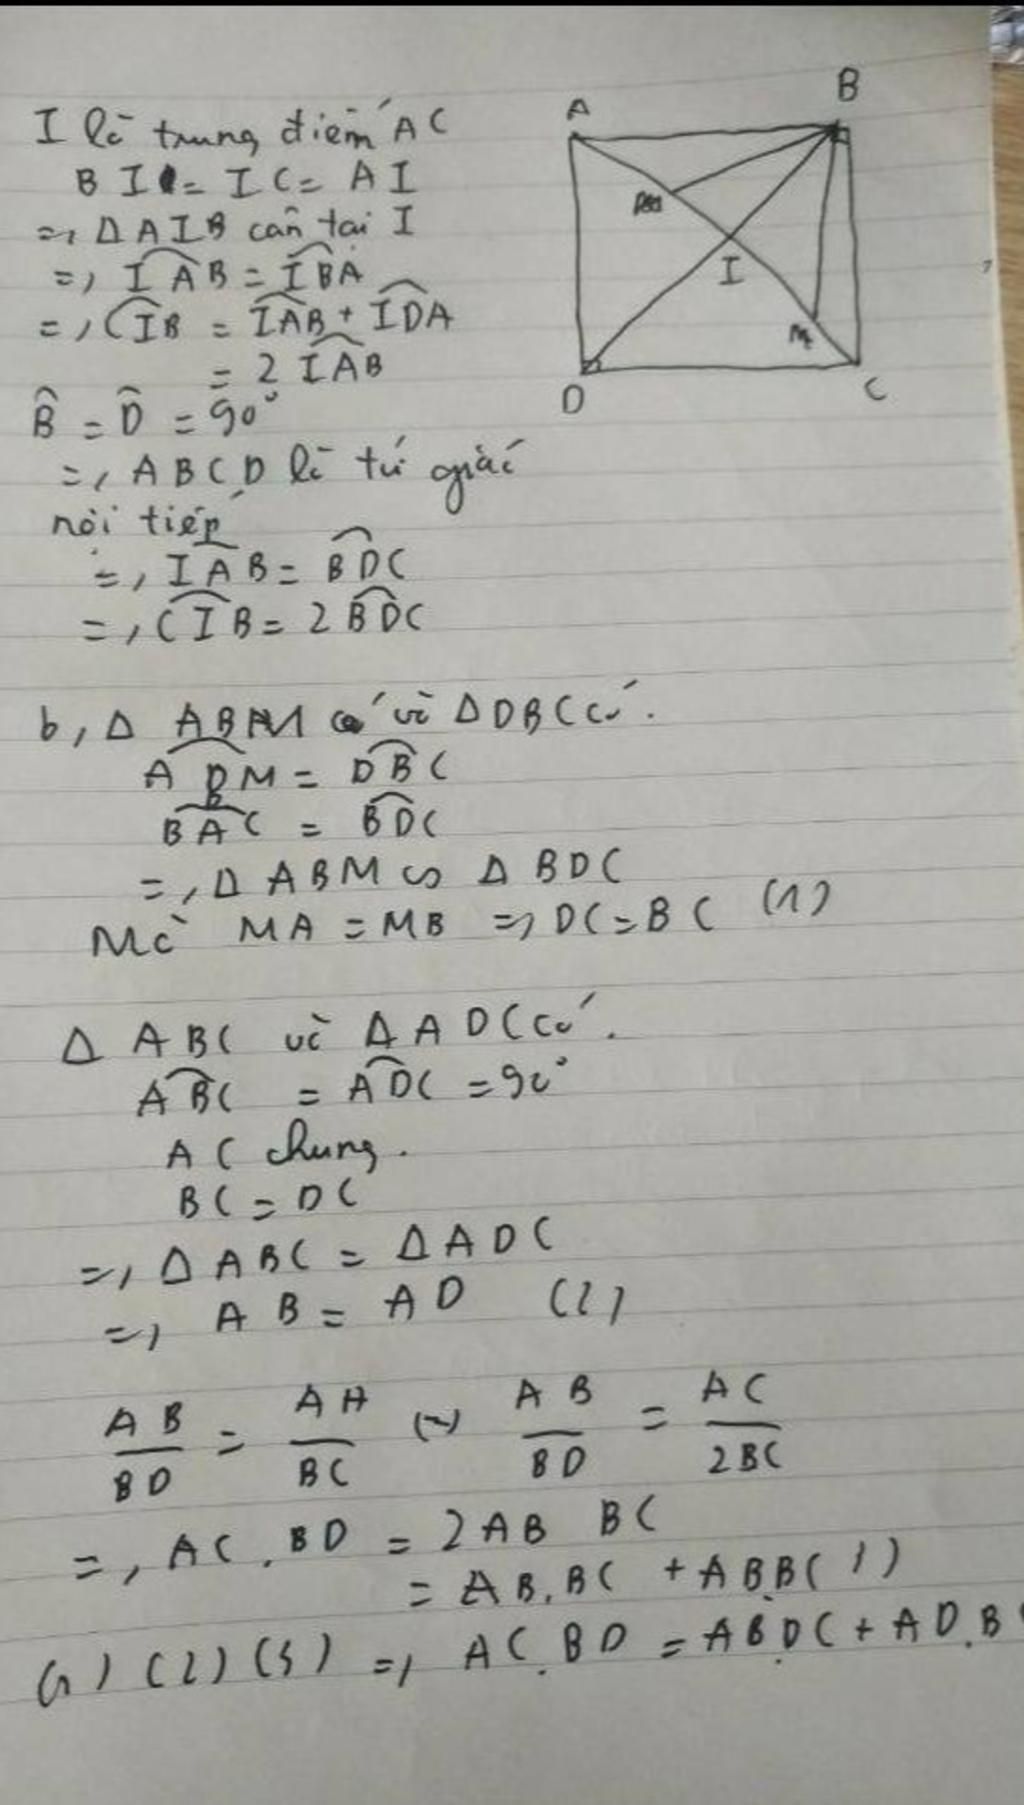 I là trung điểm AC
BI = IC = AI
=, Δ AIB cân tại I
=, IAB = IBA
=, CIB = IAB + IDA
= 2 IAB
B = D = 90°
=, ABCD là tứ giác
nội tiếp
=, IAB = BDC
=, CIB = 2 BDC
A
B
I
D
C
b, Δ ABM và Δ DBC có.
ABM = DBC
BAC = BDC
=, Δ ABM ∽ Δ BDC
Mà MA = MB =, DC = BC (1)
Δ ABC và Δ ADC có.
ABC = ADC = 90°
AC chung.
BC = DC
=, Δ ABC = Δ ADC
=, AB = AD (2)
AB/BD = AH/BC (-) AB/BD = AC/2BC
=, AC.BD = 2AB BC
= AB.BC + AB.BC )
(1) (2) (3) =, AC.BD = AB.DC + AD.B